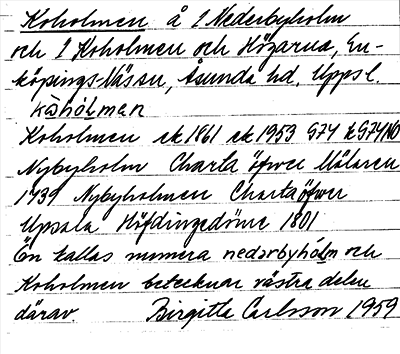 Koholmen å 1 Nederbyholm
och 1 Koholmen och Högarna, En-
köpings-Näs sn, Åsunda hd, Uppsl.
kωhòlmen
Koholmen ek 1861 ek 1953 G74 k G74/NO
Nybyholm Charta öfwer Mälaren
1739 Nybyholmen Charta öfwer
Upsala Höfdingedöme 1801
Ön kallas numera nedərbyhólm och
Koholmen betecknar västra delen
därav. Birgitta Carlsson 1959